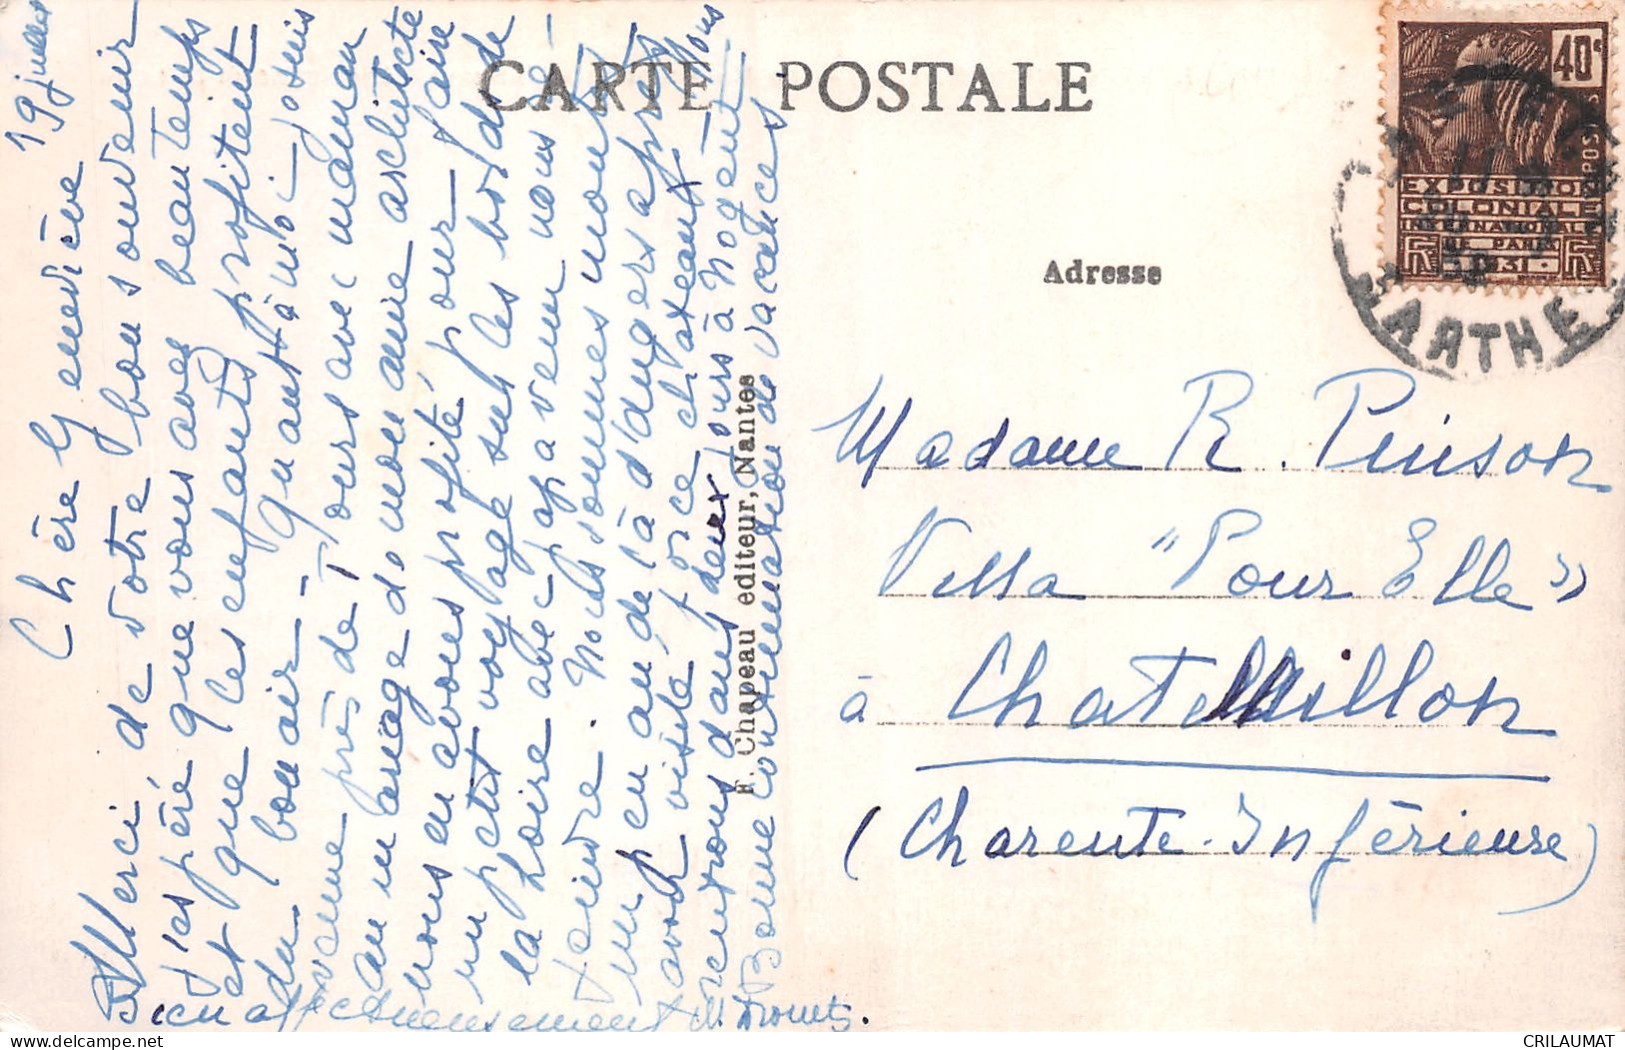 CARTE POSTALE
Adresse
F. Chapeau editeur, Nantes
40c
EXPOSITION
COLONIALE
INTERNATIONALE
DE PARIS
1931
SARTHE
19 juillet
Chère Geneviève
Merci de votre bon souvenir
j'espère que vous avez beau temps
et que les enfants profitent
du bon air - Quant à moi je suis
venue près de Tours avec maman
au mariage de mon amie architecte
nous en avons profité pour faire
un petit voyage sur les bords de
la Loire avec papa venu nous
rejoindre. Nous sommes montés
un peu au delà d'Angers après
avoir visité force châteaux. Nous
rentrons dans deux jours à Nogent
Bonne continuation de vacances
Bien affectueusement
Madame R. Pinson
Villa "Pour Elle"
à Chatelaillon
(Charente-Inférieure)
CRILAUMAT